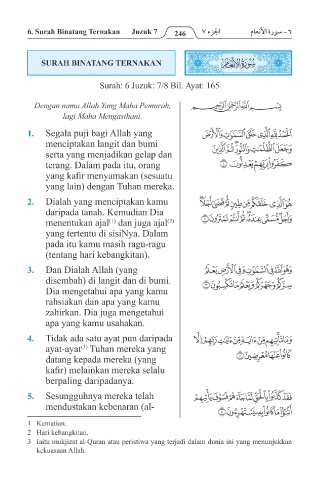 6. Surah Binatang Ternakan Juzuk 7 246 الجزء ٧ ٦ - سورة الأنعام
SURAH BINATANG TERNAKAN
سُورَةُ الأَنْعَامِ
Surah: 6 Juzuk: 7/8 Bil. Ayat: 165
Dengan nama Allah Yang Maha Pemurah,
lagi Maha Mengasihani.
بِسْمِ اللَّهِ الرَّحْمَٰنِ الرَّحِيمِ
1. Segala puji bagi Allah yang
menciptakan langit dan bumi
serta yang menjadikan gelap dan
terang. Dalam pada itu, orang
yang kafir menyamakan (sesuatu
yang lain) dengan Tuhan mereka.
الْحَمْدُ لِلَّهِ الَّذِي خَلَقَ السَّمَٰوَٰتِ وَالْأَرْضَ
وَجَعَلَ الظُّلُمَٰتِ وَالنُّورَ ثُمَّ الَّذِينَ
كَفَرُوا بِرَبِّهِمْ يَعْدِلُونَ ١
2. Dialah yang menciptakan kamu
daripada tanah. Kemudian Dia
menentukan ajal(1) dan juga ajal(2)
yang tertentu di sisiNya. Dalam
pada itu kamu masih ragu-ragu
(tentang hari kebangkitan).
هُوَ الَّذِي خَلَقَكُم مِّن طِينٍ ثُمَّ قَضَىٰ أَجَلًا
وَأَجَلٌ مُّسَمًّى عِندَهُ ثُمَّ أَنتُمْ تَمْتَرُونَ ٢
3. Dan Dialah Allah (yang
disembah) di langit dan di bumi.
Dia mengetahui apa yang kamu
rahsiakan dan apa yang kamu
zahirkan. Dia juga mengetahui
apa yang kamu usahakan.
وَهُوَ اللَّهُ فِي السَّمَٰوَٰتِ وَفِي الْأَرْضِ يَعْلَمُ
سِرَّكُمْ وَجَهْرَكُمْ وَيَعْلَمُ مَا تَكْسِبُونَ ٣
4. Tidak ada satu ayat pun daripada
ayat-ayat(3) Tuhan mereka yang
datang kepada mereka (yang
kafir) melainkan mereka selalu
berpaling daripadanya.
وَمَا تَأْتِيهِم مِّنْ ءَايَةٍ مِّنْ ءَايَٰتِ رَبِّهِمْ إِلَّا
كَانُوا عَنْهَا مُعْرِضِينَ ٤
5. Sesungguhnya mereka telah
mendustakan kebenaran (al-
فَقَدْ كَذَّبُوا بِالْحَقِّ لَمَّا جَاءَهُمْ فَسَوْفَ يَأْتِيهِمْ
أَنبَٰٓؤُا مَا كَانُوا بِهِ يَسْتَهْزِءُونَ ٥
1 Kematian.
2 Hari kebangkitan.
3 Iaitu mukjizat al-Quran atau peristiwa yang terjadi dalam dunia ini yang menunjukkan
kekuasaan Allah.